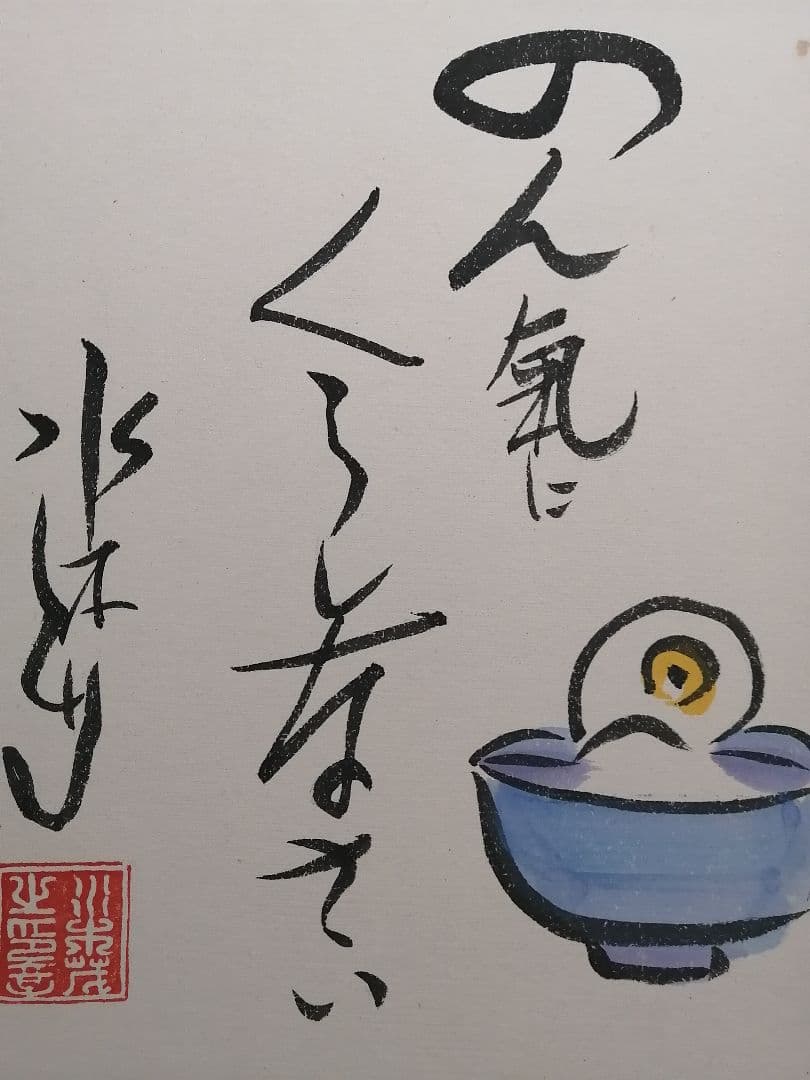 のん氣に
くらしなさい
水木しげる